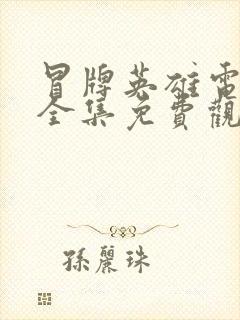 冒牌英雄電
全集免費觀
孫麗珠